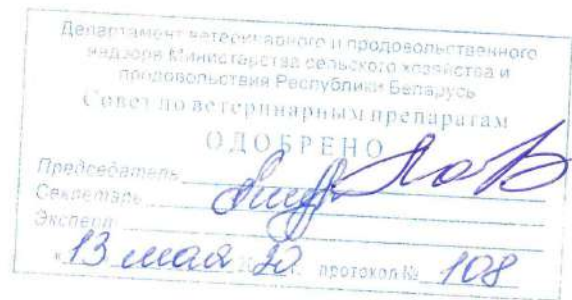 Департамент ветеринарного и продовольственного
надзора Министерства сельского хозяйства и
продовольствия Республики Беларусь
Совет по ветеринарным препаратам
ОДОБРЕНО
Председатель
Секретарь
Эксперт
"13 мая 20 протокол № 108